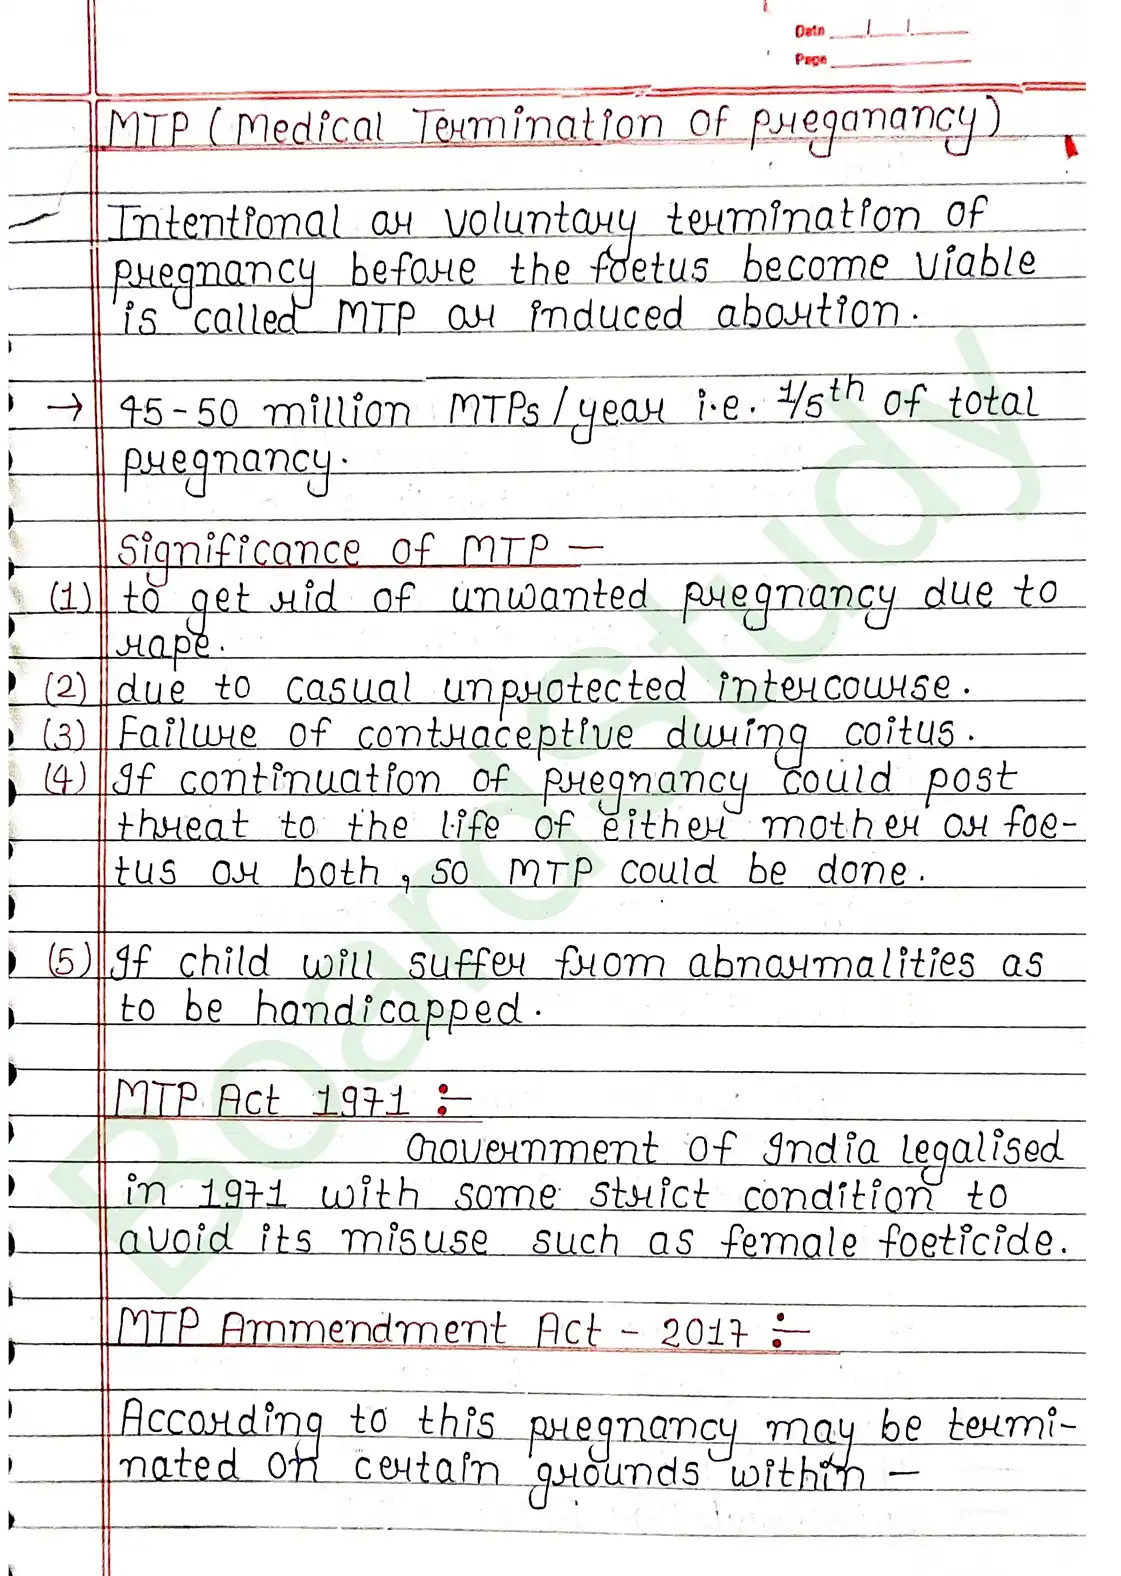 Date __/__/__
Page
MTP (Medical Termination of preganancy)
Intentional or voluntary termination of
pregnancy before the foetus become viable
is called MTP or induced abortion.
→ 45-50 million MTPs/year i.e. 1/5th of total
pregnancy.
Significance of MTP —
(1) to get rid of unwanted pregnancy due to
rape.
(2) due to casual unprotected intercourse.
(3) Failure of contraceptive during coitus.
(4) If continuation of pregnancy could post
threat to the life of either mother or foe-
tus or both, so MTP could be done.
(5) If child will suffer from abnormalities as
to be handicapped.
MTP Act 1971 :-
Government of India legalised
in 1971 with some strict condition to
avoid its misuse such as female foeticide.
MTP Ammendment Act - 2017 :-
According to this pregnancy may be termi-
nated on certain grounds within —
BoardStudy